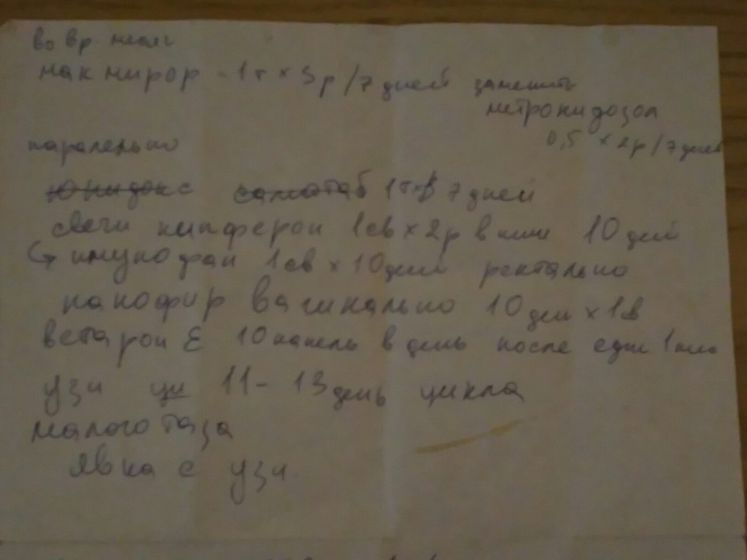 во вр.
макмирор - 1т × 3р / 7 дней заменить
метронидозол
0,5 × 2р / 7 дней
паралельно
юнидокс солютаб 1т × 7 дней
свечи кипферон 1св × 2р в 10 дней
имунофан 1св × 10 дней ректально
вагинально 10 дней × 1св
веторон Е 10 капель в день после еды 1
узи 11 - 13 день цикла
малого таза
явка с узи.